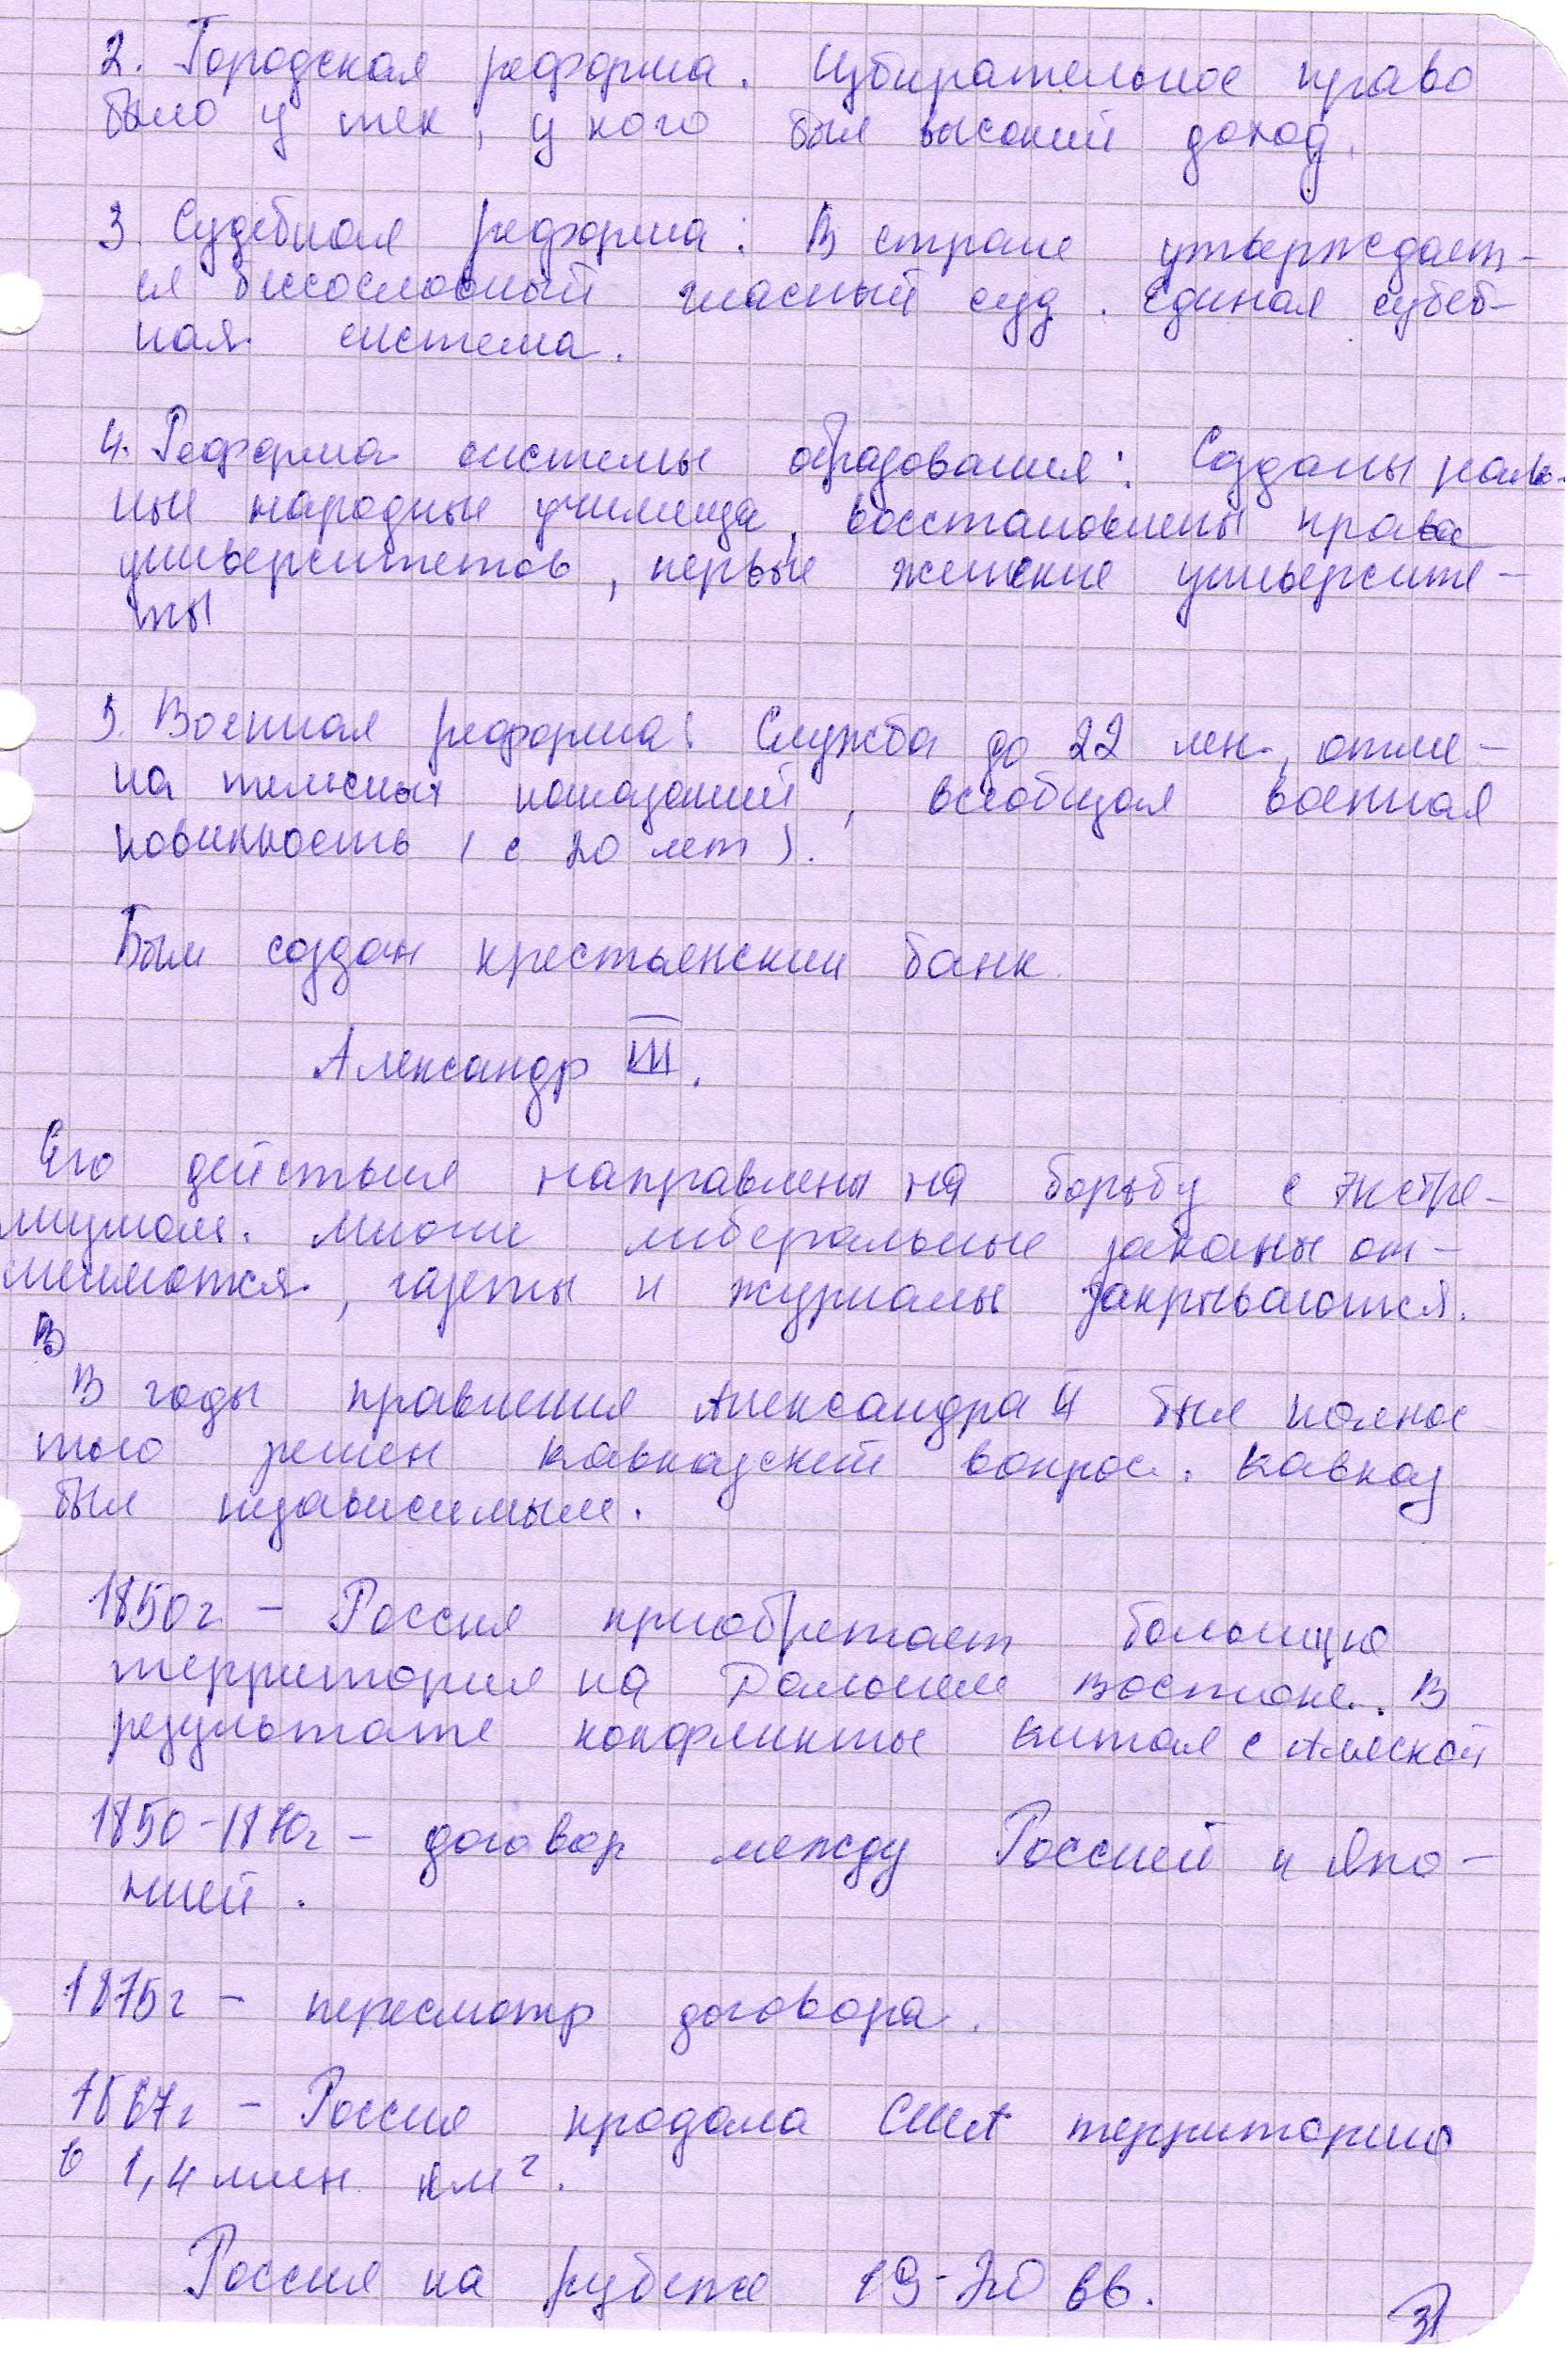 2. Городская реформа. Избирательное право
было у тех, у кого был высокий доход.
3. Судебная реформа: В стране утверждает-
ся бессословный гласный суд. Единая судеб-
ная система.
4. Реформа системы образования: Созданы
ные народные училища, восстановлены права
университетов, первые женские университе-
ты
5. Военная реформа: Служба до 22 лен., отме-
на телесных наказаний, всеобщая военная
повинность (с 20 лет).
Был создан крестьянский банк.
Александр III.
Его действия направлены на борьбу с экстре-
мизмом. Многие либеральные законы от-
меняются, газеты и журналы закрываются.
В
В годы правления Александра II был полнос
тью решен кавказский вопрос. Кавказ
был независимым.
1850г - Россия приобретает большую
территория на Дальнем Востоке. В
результате конфликты Китая с Аляской
1850-1870г - договор между Россией и Япо-
нией.
1875г - пересмотр договора.
1867г - Россия продала США территорию
в 1,4 млн. км².
Россия на рубеже 19-20 вв.
31